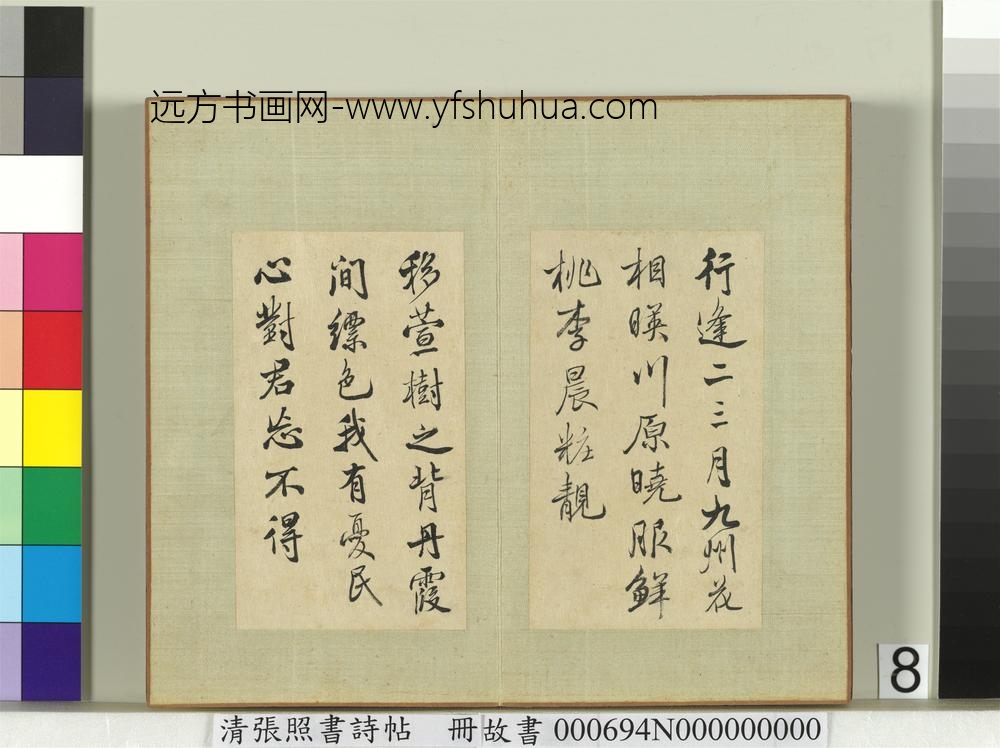 远方书画网-www.yfshuhua.com
行逢二三月九州花
相暎川原曉服鮮
桃李晨粧靚
移萱樹之背丹霞
間縹色我有憂民
心對君忘不得
8
清張照書詩帖 冊故書 000694N000000000